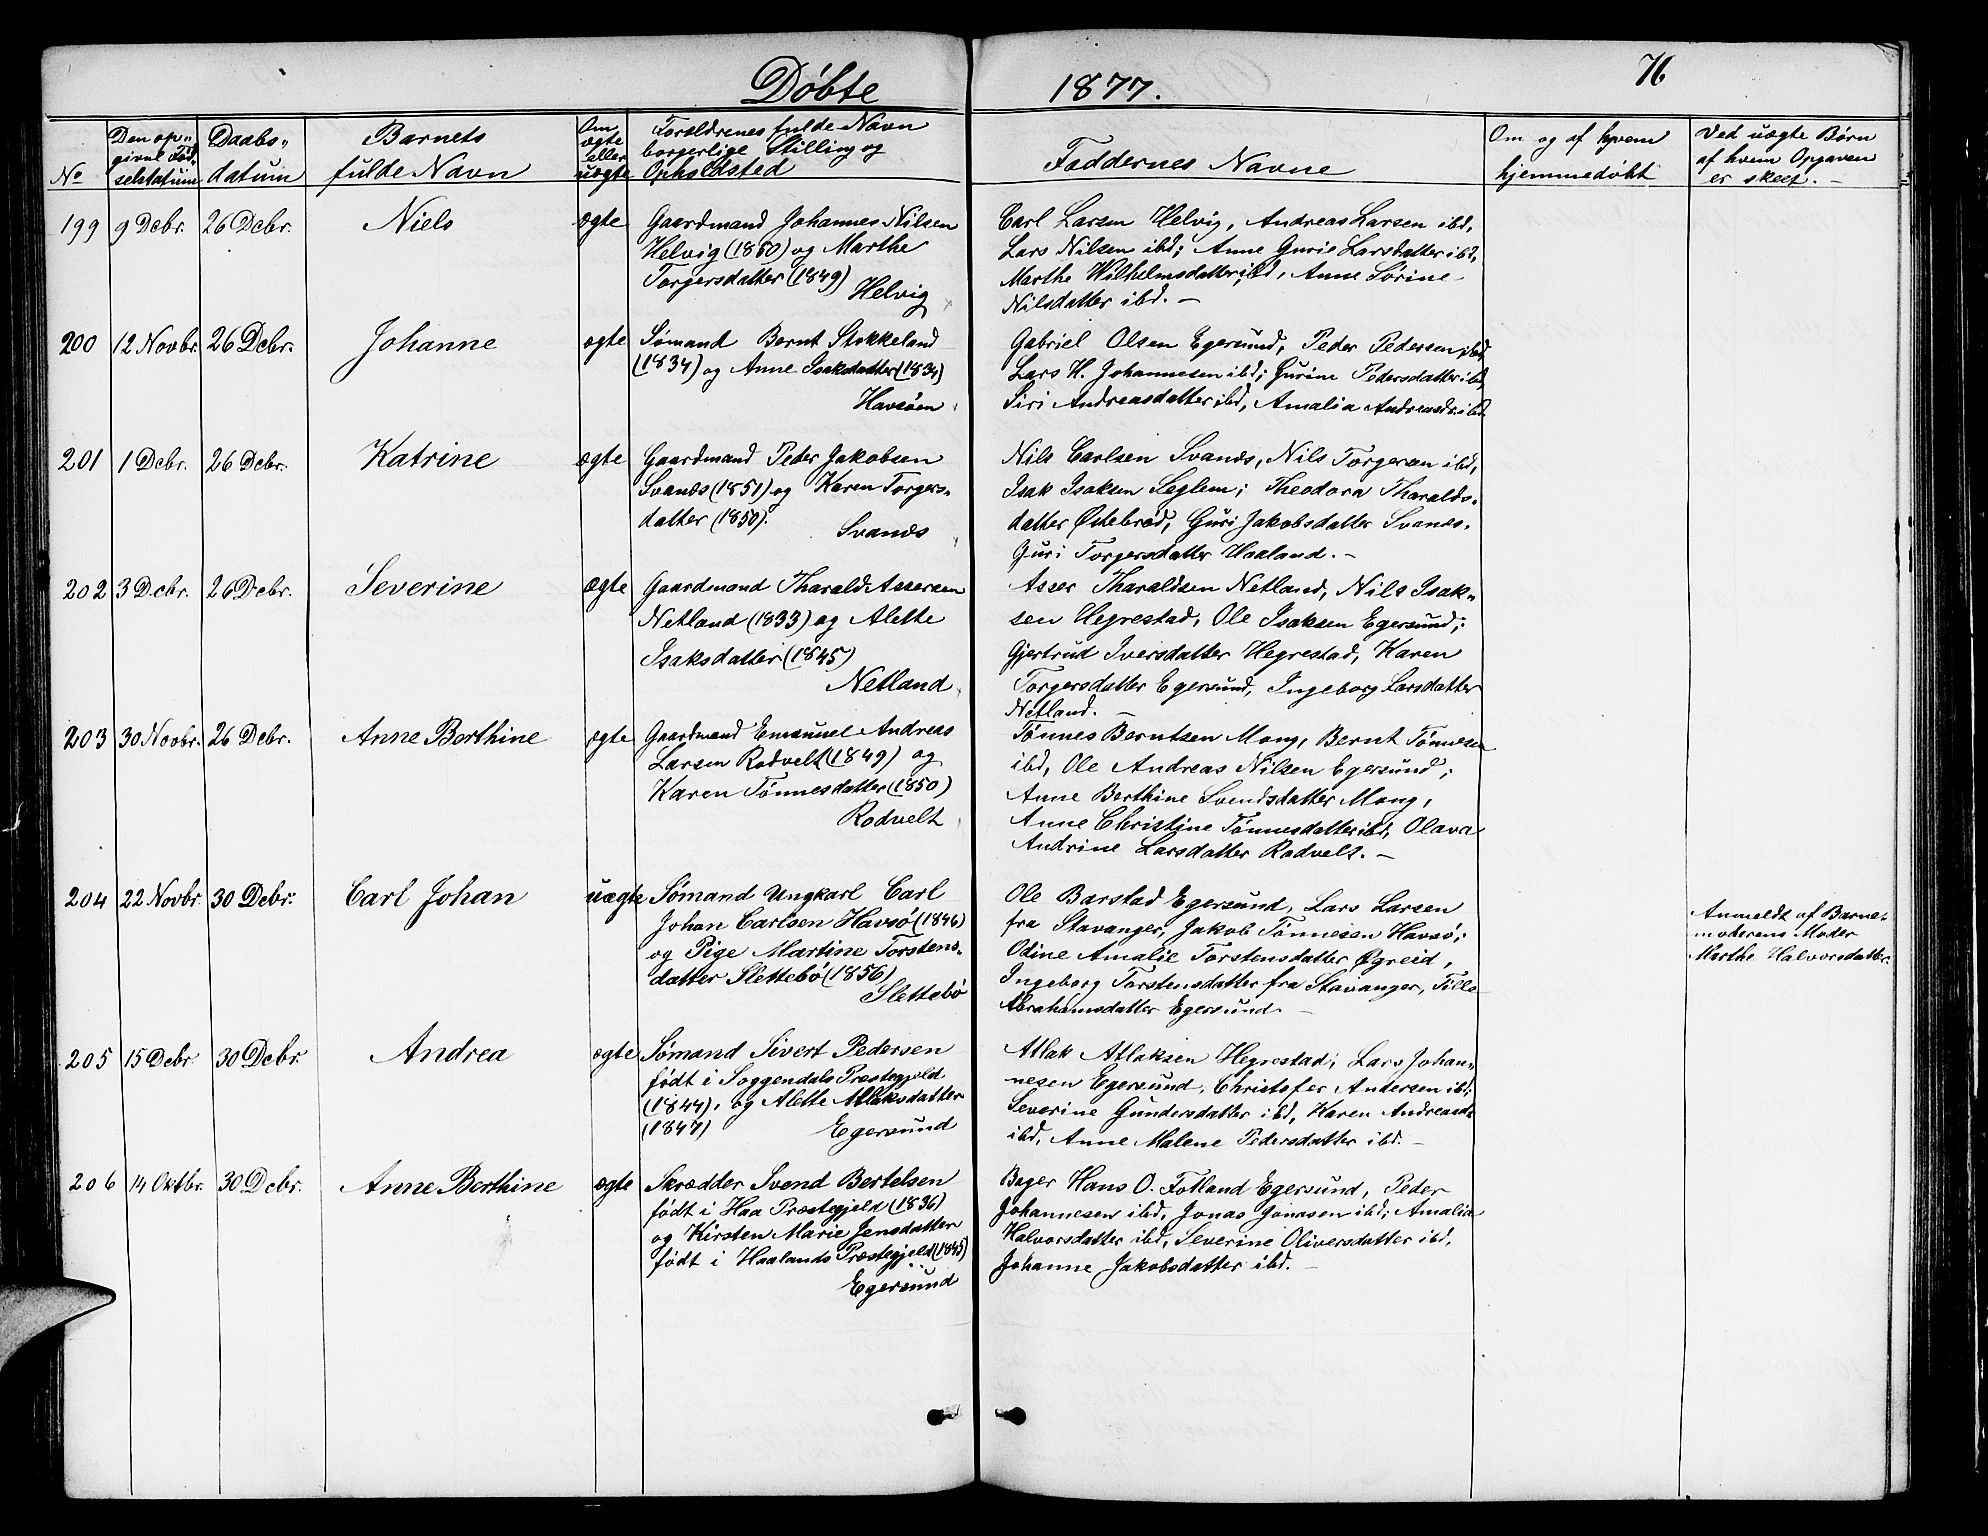 Døbte 1877. 76
No
Den op-
givne Fød-
selsdatum
Daabs-
datum
Barnets
fulde Navn
Om
ægte
eller
uægte
Forældrenes fulde Navn
borgerlige Stilling og
Opholdsted
Faddernes Navne
Om og af hvem
hjemmedøbt
Ved uægte Børn
af hvem Opgaven
er skeet. -
199 9 Debr. 26 Debr. Niels ægte Gaardmand Johannes Nilsen
Helvig (1850) og Marthe
Torgersdatter (1849)
Helvig
Carl Larsen Helvig, Andreas Larsen ibd,
Lars Nilsen ibd; Anne Gurie Larsdatter ibd,
Marthe Wilhelmsdatter ibd, Anne Sørine
Nilsdatter ibd. -
200 12 Novbr. 26 Debr. Johanne ægte Sømand Bernt Stokkeland
(1834) og Anne Isaksdatter (1834)
Havsøen
Gabriel Olsen Egersund, Peder Pedersen ibd,
Lars H. Johannesen ibd; Gurine Pedersdatter ibd,
Siri Andreasdatter ibd, Amalia Andreasdr. ibd
201 1 Debr. 26 Debr. Katrine ægte Gaardmand Peder Jakobsen
Svanæs (1851) og Karen Torgers-
datter (1850).
Svanæs
Nils Carlsen Svanæs, Nils Torgersen ibd,
Isak Isaksen Seglem; Theodora Tharalds-
datter Østebrød, Guri Jakobsdatter Svanæs,
Guri Torgersdatter Haaland. -
202 3 Debr. 26 Debr. Severine ægte Gaardmand Tharald Assersen
Netland (1833) og Alette
Isaksdatter (1845)
Netland
Asser Tharaldsen Netland, Nils Isak-
sen Hegrestad, Ole Isaksen Egersund;
Gjertrud Iversdatter Hegrestad, Karen
Torgersdatter Egersund, Ingeborg Larsdatter
Netland. -
203 30 Novbr. 26 Debr. Anne Berthine ægte Gaardmand Emanuel Andreas
Larsen Rodvelt (1849) og
Karen Tønnesdatter (1850)
Rodvelt
Tønnes Berntsen Mong, Bernt Tønnesen
ibd, Ole Andreas Nilsen Egersund;
Anne Berthine Svendsdatter Mong,
Anne Christine Tønnesdatter ibd, Olava
Andrine Larsdatter Rodvelt. -
204 22 Novbr. 30 Debr. Carl Johan uægte Sømand Ungkarl Carl
Johan Carlsen Havsø (1846)
og Pige Martine Torstens-
datter Slettebø (1856)
Slettebø
Ole Barstad Egersund, Lars Larsen
fra Stavanger, Jakob Tønnesen Havsø;
Odine Amalie Torstensdatter Øgreid,
Ingeborg Torstensdatter fra Stavanger, Tilla
Abrahamsdatter Egersund. -
Anmeldt af Barne-
moderens Moder
Marthe Halvorsdatter.
205 15 Debr. 30 Debr. Andrea ægte Sømand Sivert Pedersen
født i Soggendals Præstegjeld
(1844), og Alette Atlaksdatter
(1847) Egersund
Atlak Atlaksen Hegrestad, Lars Johan-
nesen Egersund, Christofer Andersen ibd;
Severine Gundersdatter ibd, Karen Andreasdr
ibd, Anne Malene Pedersdatter ibd. -
206 14 Oktbr. 30 Debr. Anne Berthine ægte Skrædder Svend Bertelsen
født i Haa Præstegjeld (1836)
og Kirsten Marie Jensdatter
født i Haalands Præstegjeld (1845)
Egersund
Bager Hans O. Fotland Egersund, Peder
Johannesen ibd, Jonas Jonasen ibd; Amalia
Halvorsdatter ibd, Severine Oliversdatter ibd,
Johanne Jakobsdatter ibd. -